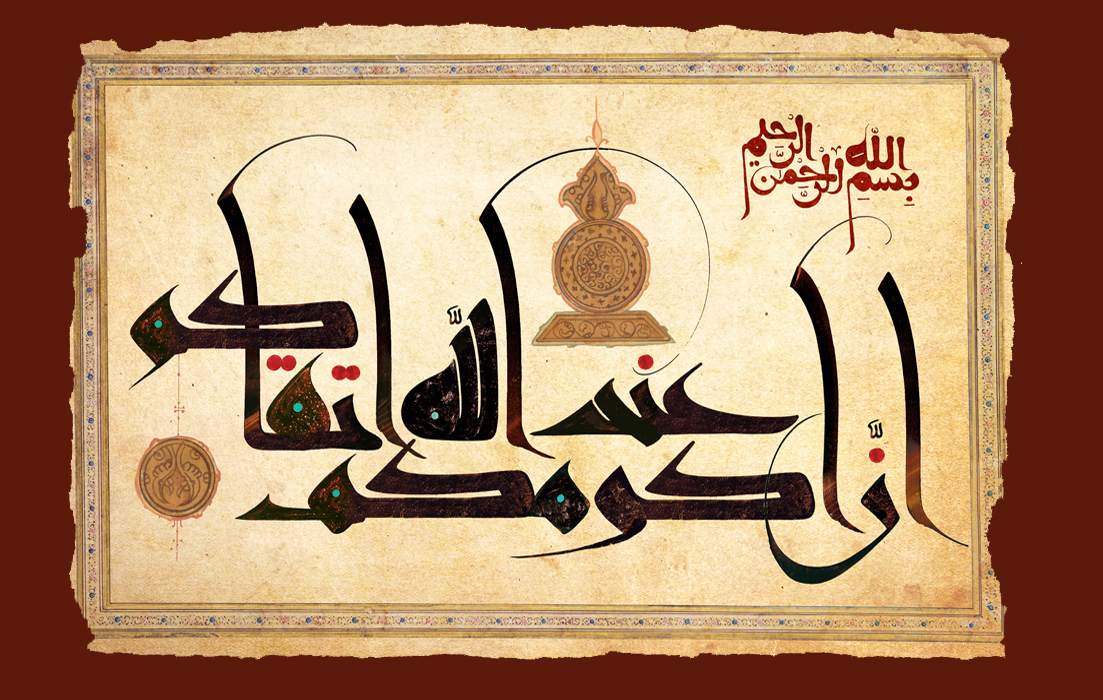 بِسْمِ اللّٰه الرَّحمٰن الرَّحیم
انَّ اکرمکم عند اللّٰه اتقاکم